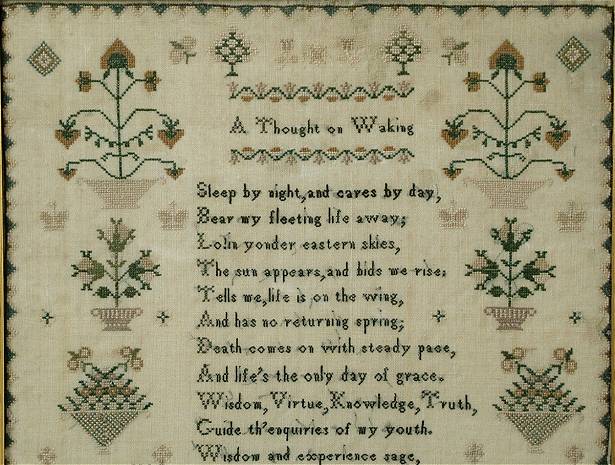 A Thought on Waking
Sleep by night, and cares by day,
Bear my fleeting life away;
Lo! in yonder eastern skies,
The sun appears, and bids me rise:
Tells me, life is on the wing,
And has no returning spring;
Death comes on with steady pace,
And life's the only day of grace.
Wisdom, Virtue, Knowledge, Truth,
Guide th'enquiries of my youth.
Wisdom and experience sage,